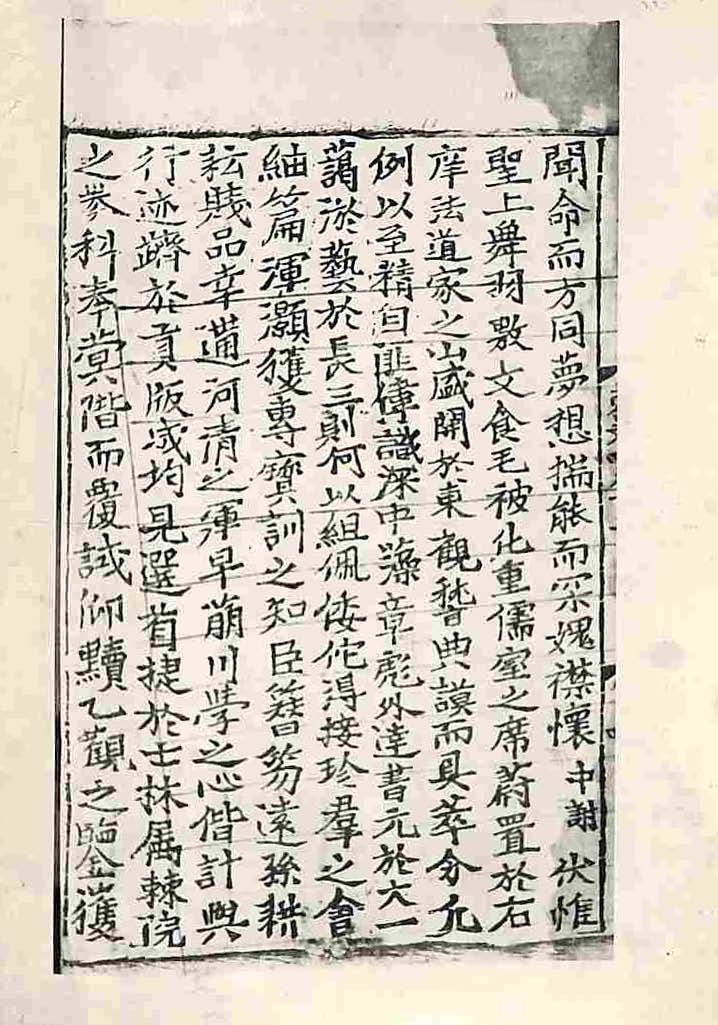 聞命而方同夢想揣能而罙媿襟懷中謝伏惟
聖上舞羽敷文食毛被化重儒室之席蔚置於右
庠法道家之山盛開於東觀稽典謨而具萃分允
例以至精洎匪傳識深中藻章彪外達書元於六一
藹淤藝於長三則何以組佩倭佗淂接珍羣之會
紬篇渾灝獲專寶訓之知臣簪笏遠孫耕
耘賤品幸遘河清之運早萠川學之心偕計與
行迹躋於貢版歲均見選首捷於士林属棘院
之科奉黌階而覆試仰黷乙觀之臨獲